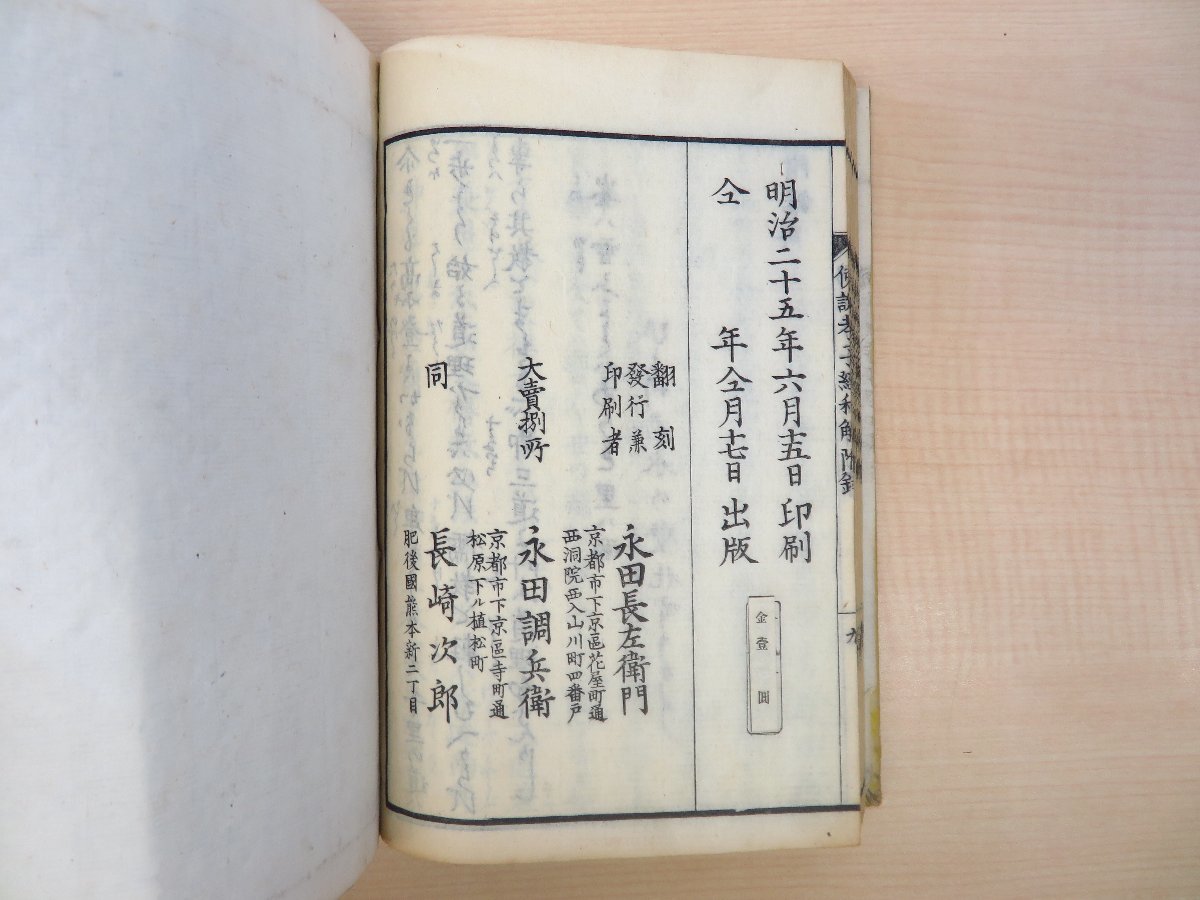 明治二十五年六月十五日印刷
仝年仝月十七日出版
金壹圓
翻刻
發行兼
印刷者
京都市下京區花屋町通
西洞院西入山川町四番戸
永田長左衛門
大賣捌所
京都市下京區寺町通
松原下ル植松町
永田調兵衛
同
肥後國熊本新二丁目
長崎次郎
孝子經和解附錄
九